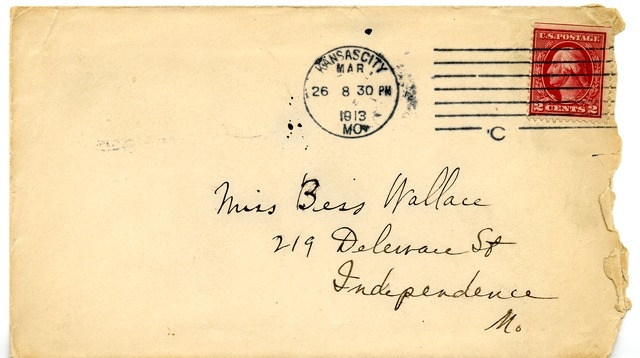 KANSAS CITY
MAR
26 8 30 PM
1913
MO.
C
U.S. POSTAGE
2 CENTS 2
Miss Bess Wallace
219 Deleware St
Independence
Mo.